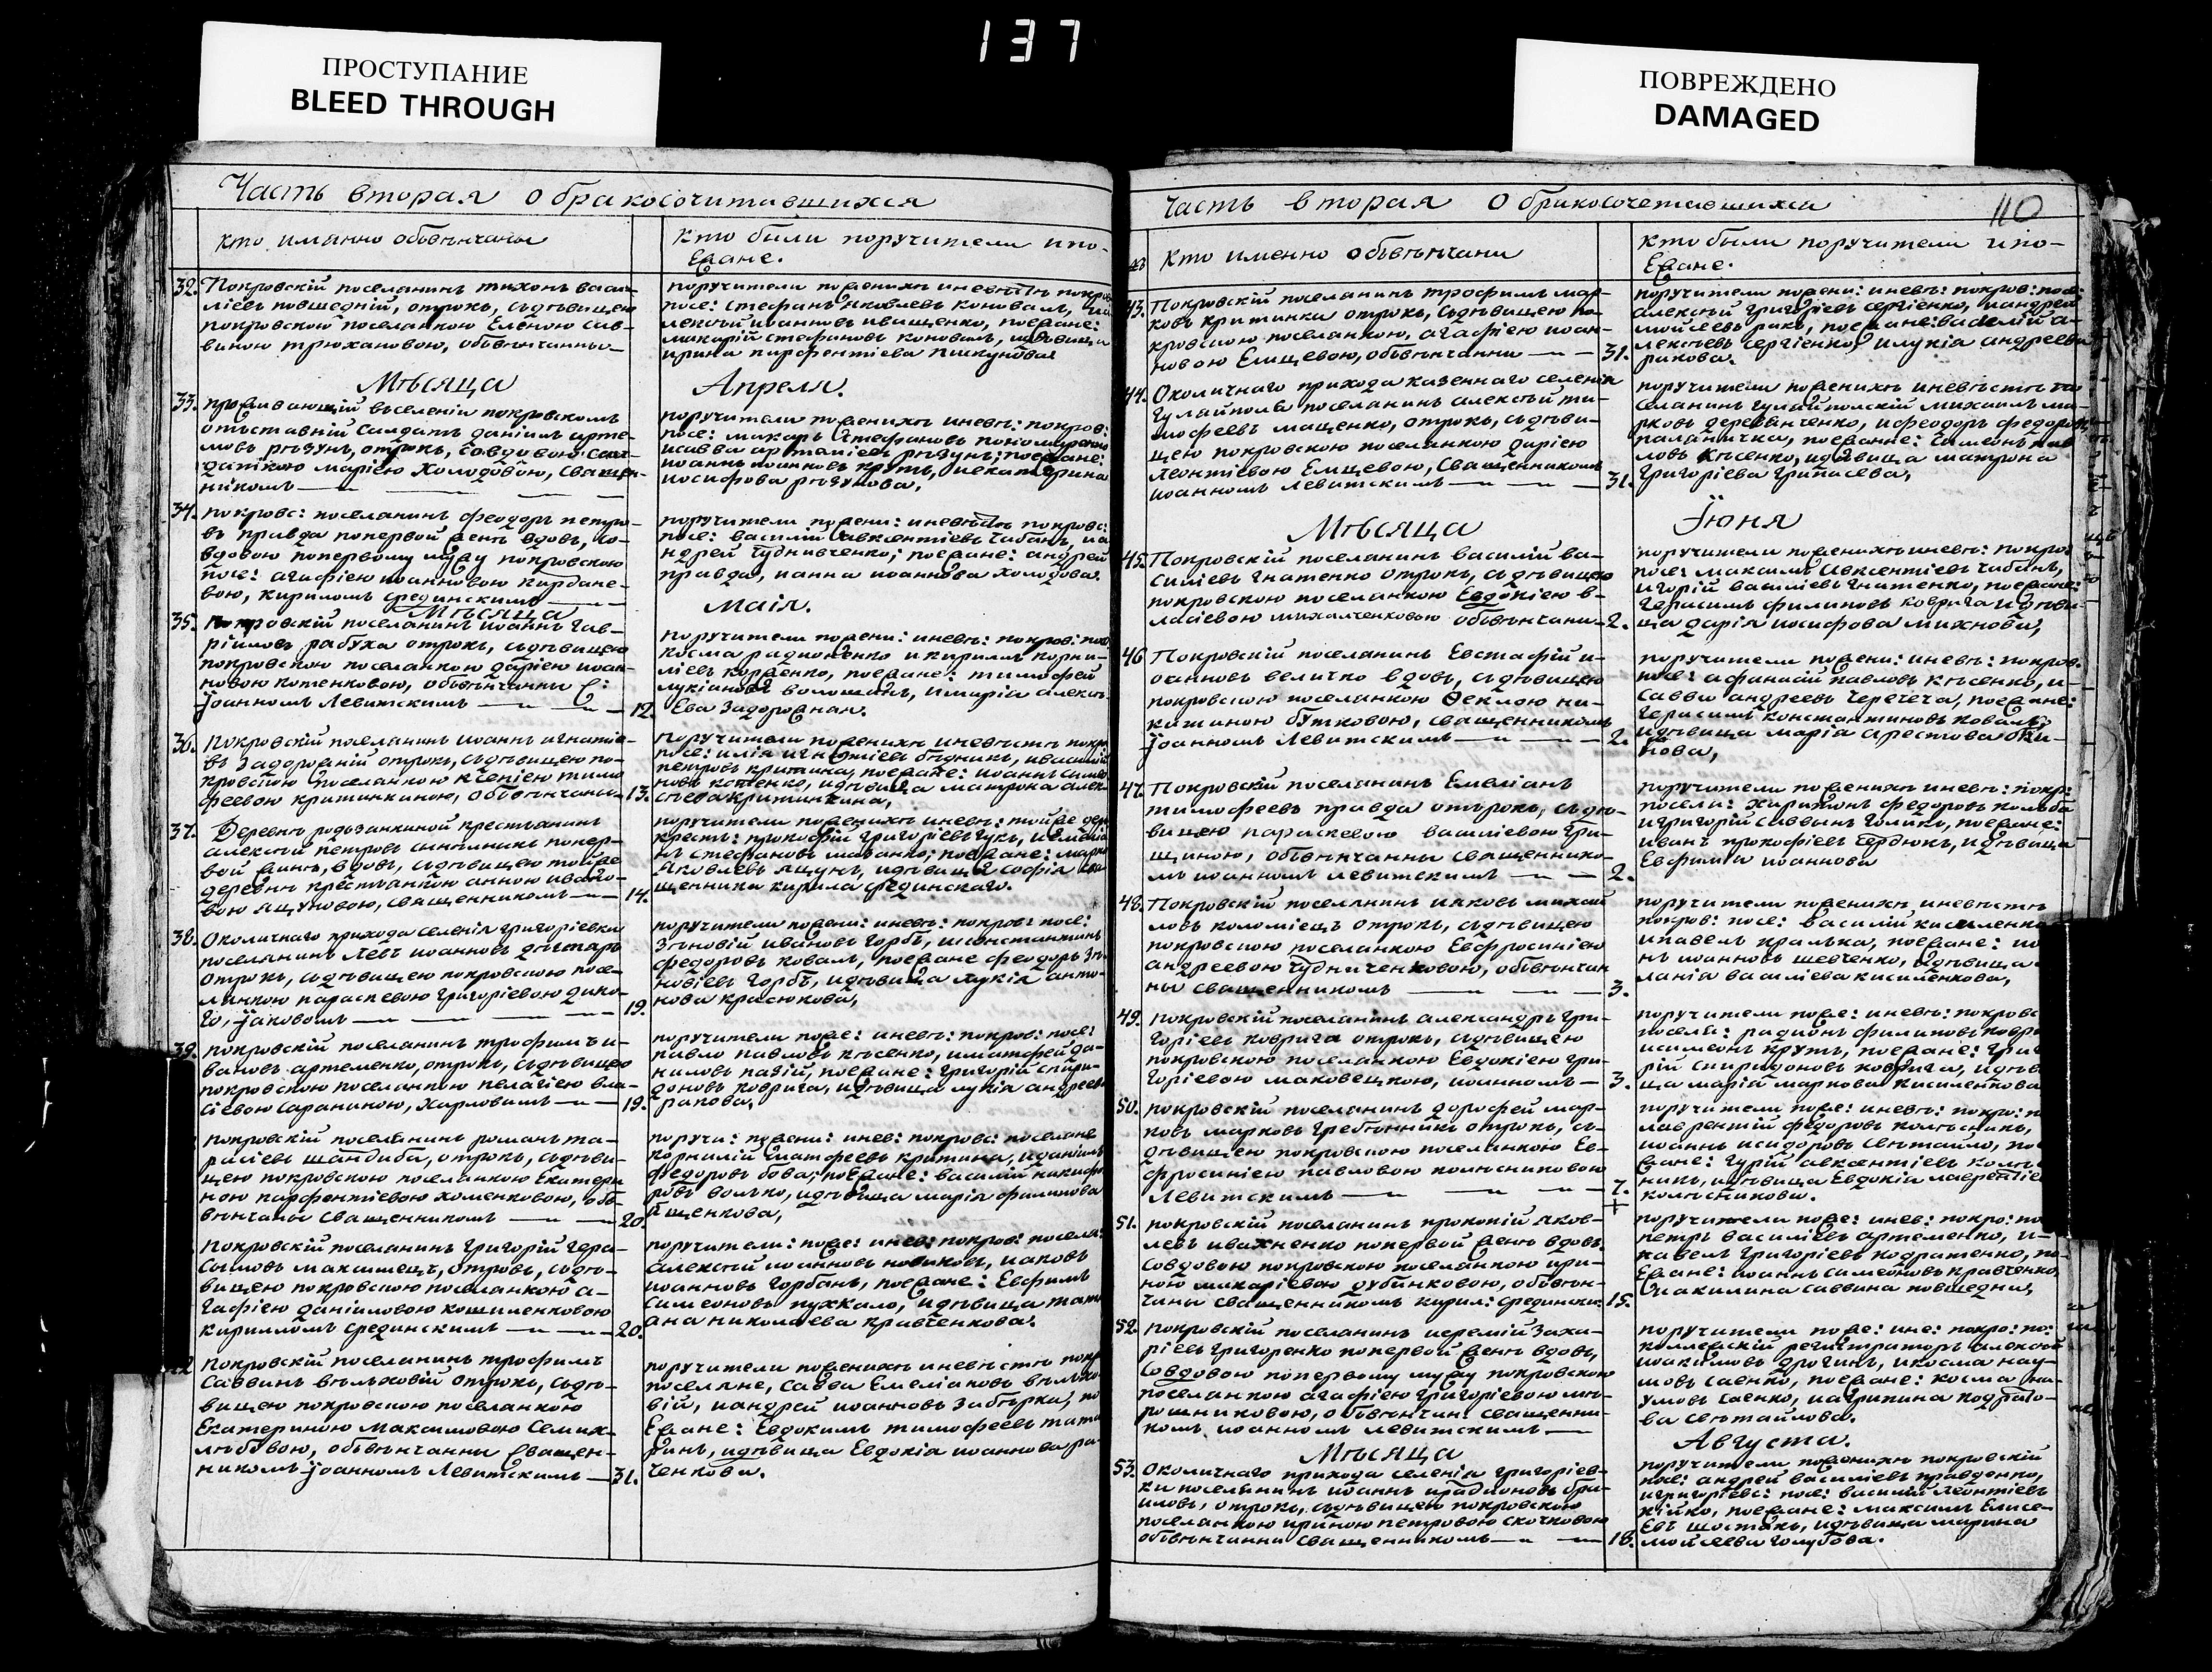 137
ПРОСТУПАНИЕ
BLEED THROUGH
ПОВРЕЖДЕНО
DAMAGED
Часть вторая о бракосочитавшихся
кто именно обвѣнчаны
кто были поручители и по-
езжане.
32. Покровскій поселянинъ тихонъ васи-
ліевъ повшедній, отрокъ, съ дѣвицею
покровскою поселянкою Еленою сав-
виною трюхановою, обвѣнчанны
поручители по женихѣ и невѣстѣ покров
посе: стефанъ яковлевъ коновалъ, и а
лексѣй иоанновъ иващенко, поезжане:
макарій стефановъ коновалъ, и дѣвица
ирина парфентіева пикунова
Мѣсяца Апреля.
33. проживающій въ селеніи покровскомъ
отъставній салдатъ даніилъ арте-
мовъ рѣзунъ, отрокъ, со вдовою сал-
даткою маріею холодовою, священ-
никомъ
поручители по женихѣ и невѣ: покров:
посе: макаръ стефановъ пономаренко
и савва артеміевъ рѣзунъ; поезжане:
иоаннъ иоанновъ крутъ, и екатерина
иосифова рѣзунова,
34. покровс: поселянинъ феодоръ петро-
въ правда по первой женѣ вдовъ, со
вдовою по первому мужу покровскою
посе: агафіею иоанновою кардане-
вою, кириломъ срединскимъ
поручители по жени: и невѣстѣ покровс:
посе: василій авксентіевъ чабанъ, и а
ндрей чудниченко; поезжане: андрей
правда, и анна иоаннова холодова.
Мѣсяца Маія.
35. покровскій поселянинъ иоаннъ гав-
ріиловъ рабуха отрокъ, съ дѣвицею
покровскою поселянкою даріею иоан-
новою котенковою, обвѣнчанны с:
іоанномъ Левитскимъ 12.
поручители по жени: и невѣ: покров: посе
косма радионенко и кирилъ корни-
ліевъ корженко, поезжане: тимофей
лукіановъ волошанъ, и марія алексѣ-
ева задорожная.
36. Покровскій поселянинъ иоаннъ игнатіе-
въ задорожній отрокъ, съ дѣвицею по-
кровскою поселянкою ксеніею тимо
феевою критинкиною, обвѣнчаны 13.
поручители по женихѣ и невѣстѣ покро
посе: илія игнатіевъ бѣдникъ, и василій
петровъ критина, поезжане: иоаннъ симео
новъ котенко, и дѣвица матрона алек
сѣева критинкина,
37. Деревнѣ родзянкиной крестьянинъ
алексѣй петровъ по пер-
вой женѣ, вдовъ, съ дѣвицею той же
деревнѣ крестьянкою анною иваno-
вою яцуновою, священникомъ 14.
поручители по женихѣ и невѣ: той же дер
крестъ: прокофій григоріевъ гукъ, и емеліа
нъ стефановъ шаванко; поезжане: марко
яковлевъ яцунъ, и дѣвица софія свя
щенника кирила срединскаго.
38. Околичнаго прихода селенія григоріевки
поселянинъ Левъ иоанновъ дѣгтяръ
отрокъ, съ дѣвицею покровскою посе-
лянкою параскевою григоріевою дико-
го, іаковомъ 19.
поручители по жени: и невѣ: покров: посе:
зѣновій ивановъ горбъ, и константинъ
федоровъ коваль, поезжане феодоръ зѣ-
новіевъ горбъ, и дѣвица лукія анто-
нова краснокова,
39. покровскій поселянинъ трофимъ и-
вановъ артеменко, отрокъ, съ дѣвицею
покровскою поселянкою пелагіею вла-
сіевою сараниною, харловимъ 19.
поручители по же: и невѣ: покров: посе:
павло павловъ кѣсенко, и матфей да-
ниловъ палій, поезжане: григорій спири-
доновъ коврига, и дѣвица лукія андреева
ракова,
покровскій поселянинъ романъ та-
расіевъ шандиба, отрокъ, съ дѣви-
цею покровскою поселянкою Екатери
ною парфентіевою хоменковою, обв-
внчаны священникомъ 20
поручи: по жени: и нев: покровс: поселяне
корнилій матфеевъ критина, и даніилъ
федоровъ бова; поезжане: василій никифо
ровъ волико, и дѣвица марія филипова
ященкова,
Покровскій поселянинъ григорій гера-
симовъ максимецъ, отрокъ, съ дѣ-
вицею покровскою поселянкою а-
гафіею даніиловою кошиленковою
кириломъ срединскимъ 20.
поручители: по же: и нев: покров: посел:
алексѣй иоанновъ новиковъ, и аковъ
иоанновъ горбанъ, поезжане: Евфимъ
симеоновъ пухкало, и дѣвица тати
ана николаева кравченкова.
Покровскій поселянинъ трофимъ
саввинъ вѣлѣковій отрокъ, съ дѣ-
вицею покровскою поселянкою
Екатериною Максимовою Семик-
лѣбовою, обвѣнчанны священ-
никомъ іоанномъ Левитскимъ 31.
поручители по женихѣ и невѣстѣ покр
поселяне, савва Емеліановъ вѣлѣко-
вій, и андрей иоанновъ забѣрка, по
Езжане: Евдокимъ тимофеевъ тата
ринъ, и дѣвица Евдокія иоаннова ра-
ченкова.
Часть вторая о бракосочетавшихся 110
кто именно обвѣнчани
кто были поручители и по-
Езжане.
43. Покровскій поселянинъ трофимъ мар-
ковъ критинка отрокъ, съ дѣвицею по-
кровскою поселянкою, агафіею иоан-
новою Елицевою, обвѣнчанни 31.
поручители по жени: и невѣ: покров: посе:
алексѣй григоріевъ сергіенко, и андрей
мойсеевъ ракъ, поезжане: василій а-
лексѣевъ сергіенко, и лукія андреева
ракова.
44. Околичнаго прихода казеннаго селенія
гулайполя поселянинъ алексѣй ти-
мофеевъ мащенко, отрокъ, съ дѣви-
цею покровскою поселянкою даріею
Леонтіевою Елицевою, священникомъ
иоанномъ Левитскимъ 31.
поручители по женихѣ и невѣстѣ по
селянинъ гулайполскій михаилъ ма
рковъ деревянченко, и феодоръ федоро
паланичка, поезжане: симеонъ пав
ловъ кѣсенко, и дѣвица матрона
григоріева грипасева,
Мѣсяца Іюня
45. Покровскій поселянинъ василій ва-
силіевъ гнатенко отрокъ, съ дѣвицею
покровскою поселянкою Евдокіею в-
ласіевою михалченковою обвѣнчани 2.
поручители по женихѣ и невѣ: покро
посе: максимъ авксентіевъ чабанъ,
и горій василіевъ гнатенко, поезжане:
герасимъ филиповъ коврига и дѣви-
ца дарія иосифова михнова,
46 Покровскій поселянинъ Евстафій и-
оанновъ величко вдовъ, съ дѣвицею
покровскою поселянкою Феклою ни-
китиною бутковою, священникомъ
іоанномъ Левитскимъ 2.
поручители по жени: и невѣ: покров.
посе: афанасій павловъ кѣсенко, и-
савва андреевъ черетеча, поезжане:
герасимъ константиновъ коваль,
и дѣвица марія арестова
нова,
47. Покровскій поселянинъ Емеліанъ
тимофеевъ правда отърокъ, съ дѣ-
вицею параскевою василіевою гри-
циною, обвѣнчанны священнико-
мъ иоанномъ левитскимъ 2.
поручители по женихѣ и невѣ: покр:
посели: харитонъ федоровъ колиба
и григорій саввинъ голикъ, поезжане:
иванъ прокофіевъ сердюкъ, и дѣвица
Евфимія иоаннова
48. Покровскій поселянинъ иаковъ михай
ловъ коломіецъ отрокъ, съ дѣвицею
покровскою поселянкою Евфросиніею
андреевою чудниченковою, обвѣнчан
ны священникомъ 3.
поручители по женихѣ и невѣстѣ
покров: посе: василій кисиленко
и павелъ кралька, поезжане: ио
нъ иоанновъ шевченко, и дѣвица
ланія василіева кисиленкова,
49. покровскій поселянинъ александръ гри-
горіевъ коврига отрокъ, съ дѣвицею
покровскою поселянкою Евдокіею гри-
горіевою маковецкою, иоанномъ 3.
поручители по же: и невѣ: покровс
посели: радионъ филиповъ коври
и симеонъ крутъ, поезжане: григ
рій спиридоновъ коврига, и дѣви
ца марій маркова кисиленкова
50. покровскій поселянинъ дорофей мар-
ковъ марковъ гребѣнникъ отрокъ, съ-
дѣвицею покровскою поселянкою Ев-
фросиніею павловою колѣсниковою
Левитскимъ 7.
поручители по же: и невѣ: покро: п
лаврентій федоровъ колѣсникъ,
иоаннъ исидоровъ свѣтайло, по
езжане: гурій авксентіевъ колѣ
никъ, и дѣвица Евдокія лаврентіе
колѣсникова.
51. покровскій поселянинъ прокопій яков-
левъ ивахненко по первой женѣ вдовъ,
со вдовою покровскою поселянкою ири-
ною макаріевою дубинковою, обвѣн-
чаны священникомъ кирил: срединским 15.
поручители по же: и нев: покро: по
петръ василіевъ артеменко, и-
павелъ григоріевъ кодратенко, по-
Езжане: иоаннъ симеоновъ кравченко
и акилина саввина повшедня,
52. покровскій поселянинъ иеремій заха-
ріевъ григоренко по первой женѣ вдовъ,
со вдовою по первому мужу покровскою
поселянкою агафіею григоріевою ми-
рошниковою, обвѣнчан: священни-
комъ иоанномъ левитскимъ
поручители по же: и не: покро: по:
коллежскій регистраторъ алексѣй
иоакимовъ дрогинъ, и косма нау-
мовъ саенко, поезжане: косма на-
умовъ саенко, и агрипина кодрато-
ва свѣтайлова.
Мѣсяца Августа.
53. Околичнаго прихода селенія григоріев-
ки поселянинъ иоаннъ иродионовъ бри-
иловъ, отрокъ, съ дѣвицею покровскою
поселянкою ириною петровою скочковою
обвѣнчанни священникомъ 18.
поручители по женихѣ покровскій
посе: андрей василіевъ правденко,
и григоріевс: посе: василій Леонтіевъ
кійко, поезжане: максимъ Елисе-
евъ шостакъ, и дѣвица марина
мойсеева голубова.